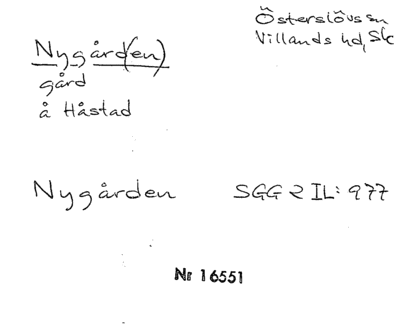 Österslövs sn
Villands hd, Sk
Nygård(en)
gård
å Håstad
Nygården SGG 2 IL: 977
Nr 16551